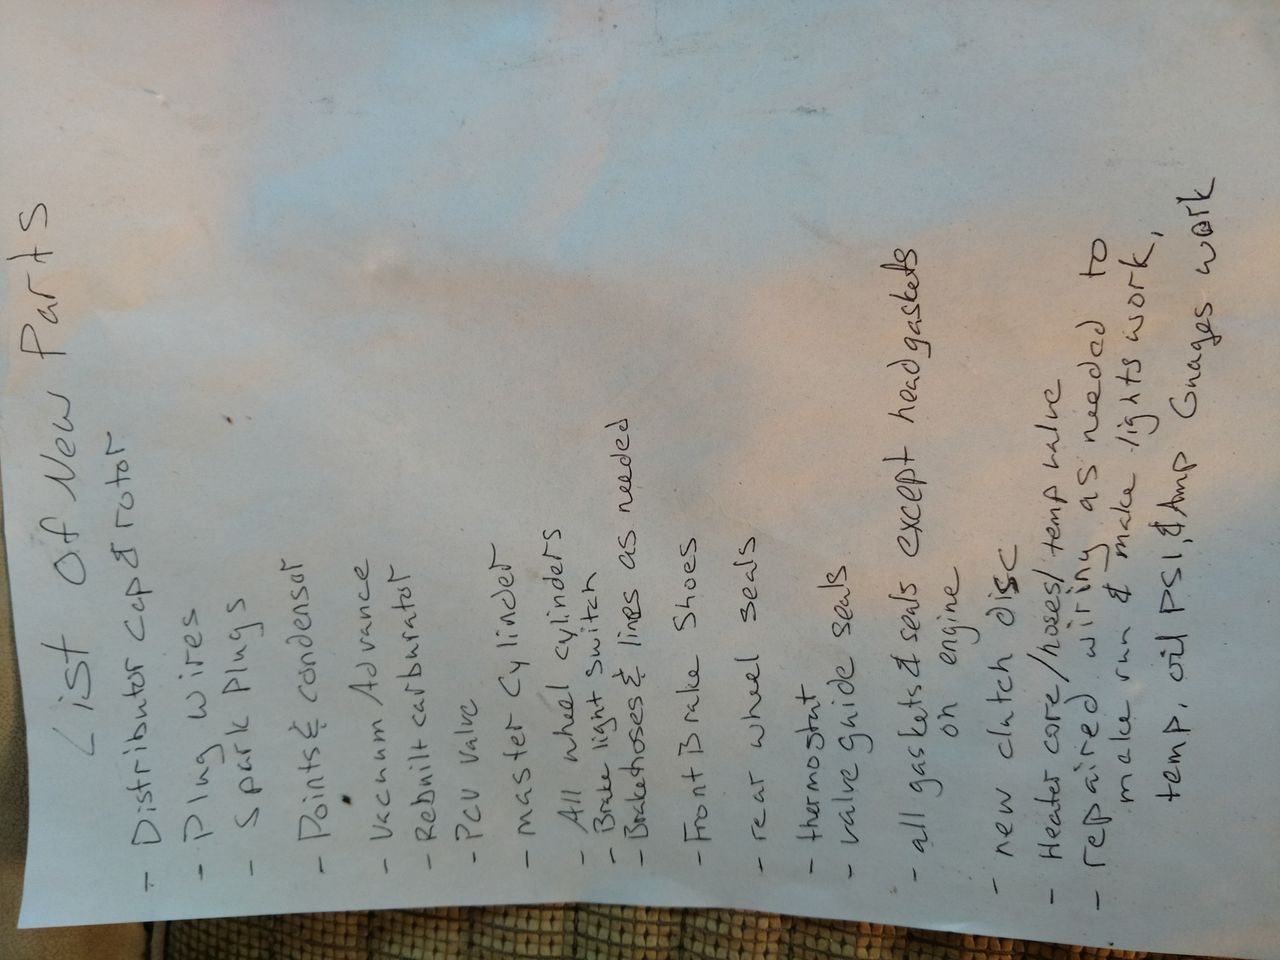 List Of New Parts
- Distributor cap & rotor
- Plug wires
- Spark Plugs
- Points & condensor
- Vacuum Advance
- Rebuilt carburator
- PCV valve
- master cylinder
- All wheel cylinders
- Brake light switch
- Brakehoses & lines as needed
- Front Brake Shoes
- rear wheel seals
- thermostat
- valve guide seals
- all gaskets & seals except headgaskets
on
engine
- new clutch disc
- Heater core/hoses/temp valve
- repaired wiring as needed to
make run & make lights work,
temp, oil PSI, & Amp Guages work